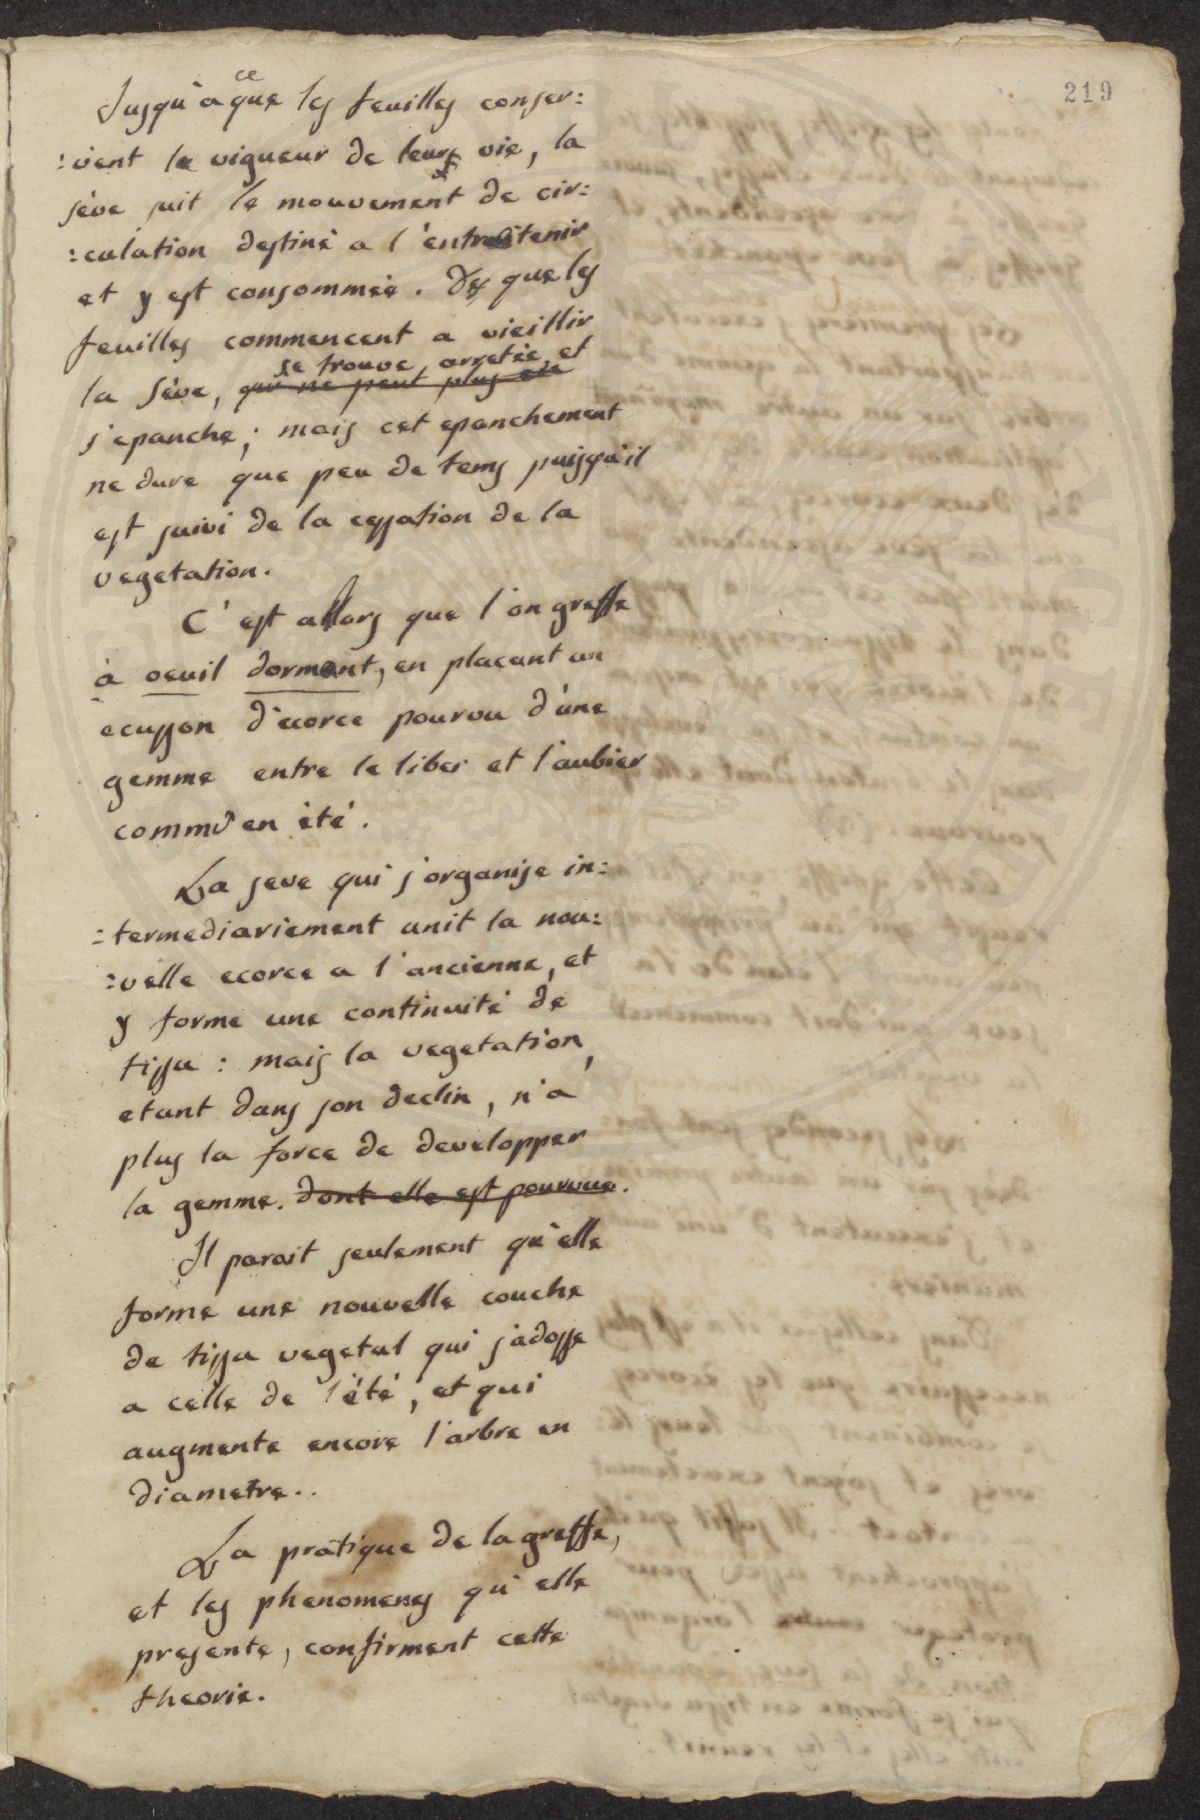 219
Jusqu'a ce que les feuilles conser:
:vent la vigueur de leurs vie, la
sève suit le mouvement de cir:
:culation destiné a l'entretenir
et y est consommée. Des que les
feuilles commencent a vieillir
se trouve, arretée, et
la Sève, qui ne peut plus etre
s'epanche; mais cet epanchement
ne dure que peu de tems puisqu'il
est suivi de la cessation de la
vegetation.
C'est allors que l'on greffe
à oeuil dormant, en placant un
ecusson d'ecorce pourvu d'une
gemme entre le liber et l'aubier
comme en été.
La seve qui s'organise in:
:termediariement unit la nou:
:velle ecorce a l'ancienne, et
y forme une continuité de
tissu : mais la vegetation,
etant dans son declin, n'a
plus la force de developper
la gemme. dont elle est pourvue.
Il parait seulement qu'elle
forme une nouvelle couche
de tissu vegetal qui s'adosse
a celle de l'été, et qui
augmente encore l'arbre en
diametre..
La pratique de la greffe,
et les phenomenes qu'elle
presente, confirment cette
theorie.